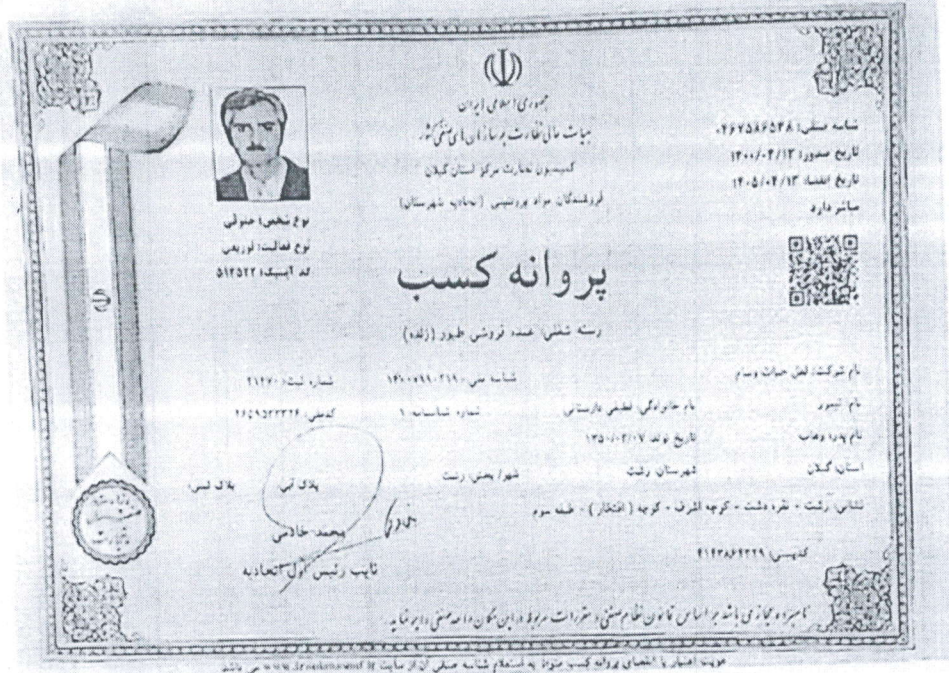 جمهوری اسلامی ایران
هیات عالی نظارت بر سازمان های صنفی کشور
کمیسیون نظارت مرکز استان گیلان
فروشندگان مواد پروتئینی (اتحادیه شهرستان)
شناسه صنفی: ۰۴۶۷۵۸۶۵۳۸
تاریخ صدور: ۱۴۰۰/۰۴/۱۳
تاریخ انقضا: ۱۴۰۵/۰۴/۱۳
مباشر دارد
نوع شخص: حقوقی
نوع فعالیت: توزیعی
کد آیسیک: ۵۱۲۵۲۲
پروانه کسب
رسته شغلی: عمده فروشی طیور (زنده)
نام شرکت: لعل حیات وسام شناسه ملی: ۱۴۰۰۷۹۸۰۲۱۹ شماره ثبت: ۲۱۲۷۰
نام: تیمور نام خانوادگی: لطیفی دارستانی شماره شناسنامه: ۱ کدملی:
نام پدر: وهاب تاریخ تولد: ۱۳۵۰/۰۲/۰۷
استان: گیلان شهرستان: رشت شهر/ بخش: رشت پلاک آبی: پلاک ثبتی:
نشانی: رشت - نقره دشت - کوچه اشرف - کوچه ( افتخار ) - طبقه سوم
کدپستی: ۴۱۴۳۸۶۴۳۲۹
محمد خادمی
نایب رئیس اول اتحادیه
نامبرده مجاز می باشد بر اساس قانون نظام صنفی و مقررات مربوط در این مکان واحد صنفی دایر نماید.